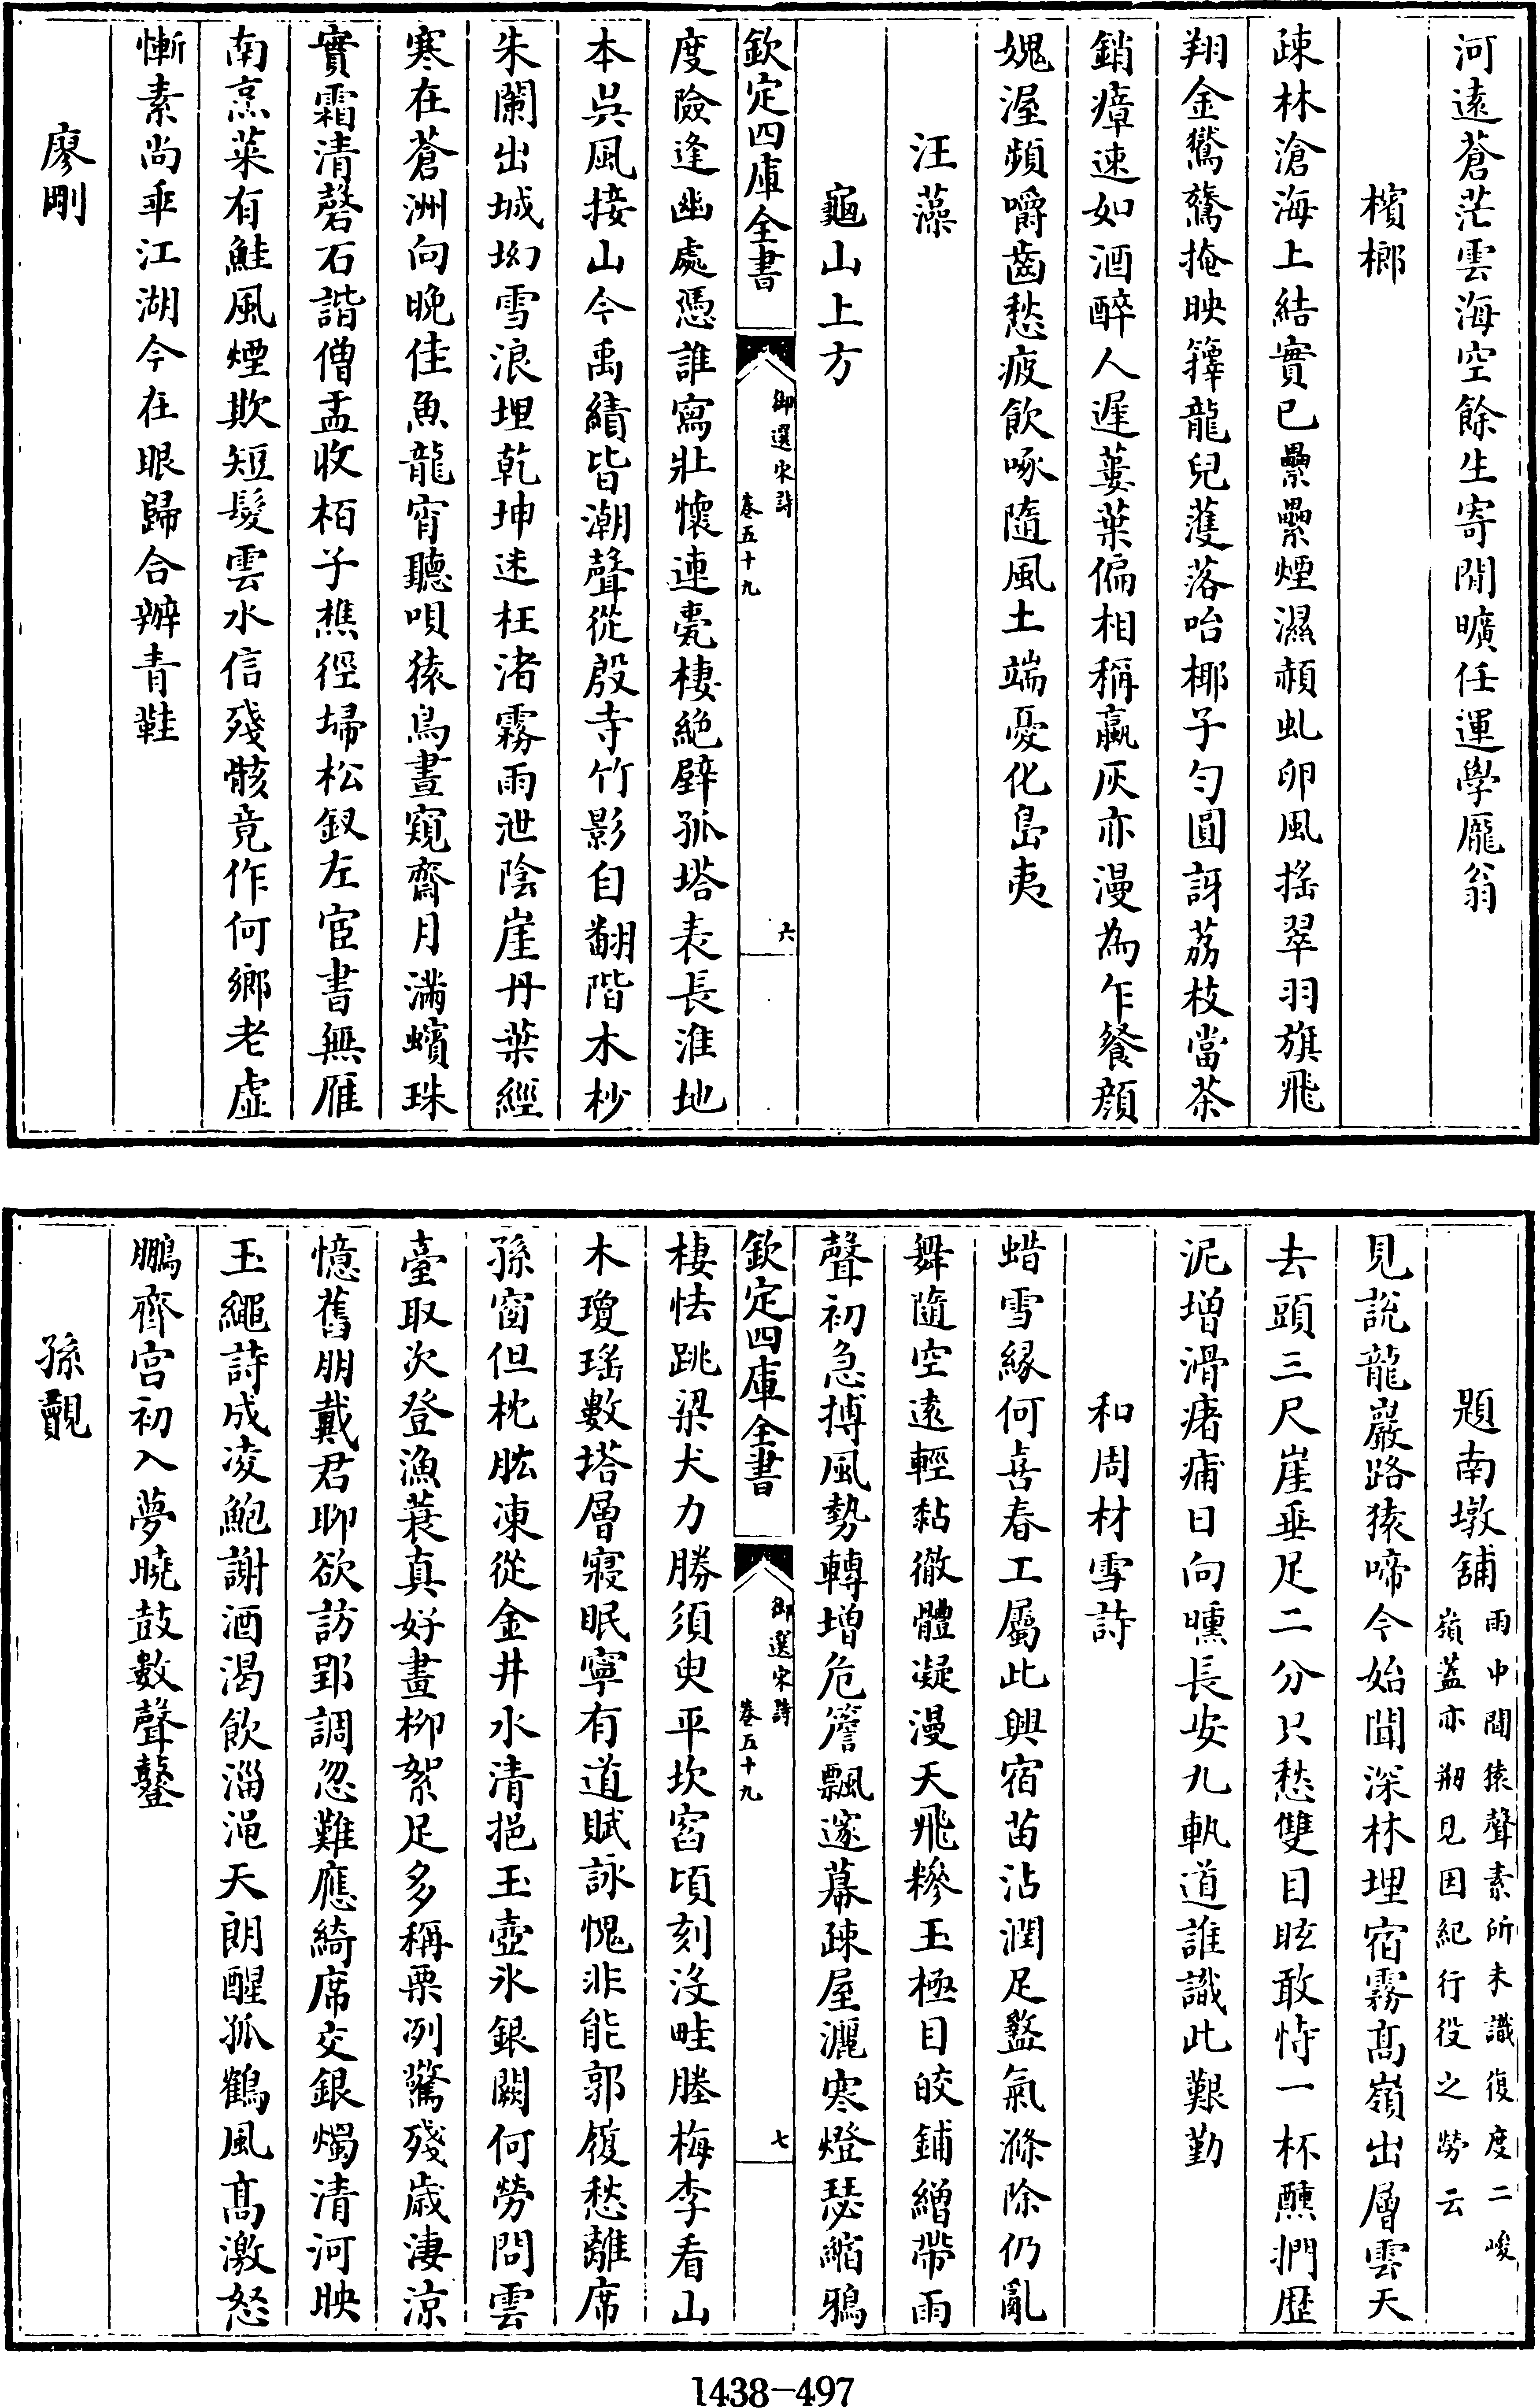 河遠蒼茫雲海空餘生寄閒曠任運學龎翁
檳榔
疎林滄海上結實已纍纍煙濕赬虬卵風搖翠羽旗飛
翔金鸑鷟掩映籜龍兒蒦落咍椰子勻圓訝荔枝當茶
銷瘴速如酒醉人遲蔞葉偏相稱蠃灰亦漫為乍餐顔
媿渥頻嚼齒愁疲飲啄隨風土端憂化島夷
汪藻
龜山上方
欽定四庫全書
御選宋詩
卷五十九
六
度險逢幽處憑誰寫壯懷連甍棲絶壁孤塔表長淮地
本吳風接山今禹績皆潮聲從殷寺竹影自翻階木杪
朱闌出城坳雪浪埋乾坤迷枉渚霧雨泄陰崖丹葉經
寒在蒼洲向晚佳魚龍宵聽唄猿鳥晝窺齋月滿蠙珠
實霜清磬石諧僧盂收栢子樵徑埽松釵左宦書無雁
南烹菜有鮭風煙欺短髮雲水信殘骸竟作何鄉老虛
慚素尚乖江湖今在眼歸合辦青鞋
廖剛
題南墩舖
雨中聞猿聲素所未識復度二峻
嶺蓋亦剏見因紀行役之勞云
見說龍巖路猿啼今始聞深林埋宿霧髙嶺出層雲天
去頭三尺崖垂足二分只愁雙目眩敢恃一杯醺捫歴
泥增滑瘏痡日向曛長安九軌道誰識此艱勤
和周材雪詩
蜡雪緣何喜春工屬此興宿苗沾潤足盭氣滌除仍亂
舞隨空遠輕黏徹體凝漫天飛糝玉極目皎鋪繒帶雨
聲初急搏風勢轉增危簷飄邃幕疎屋灑寒燈瑟縮鴉
欽定四庫全書
御選宋詩
卷五十九
七
棲怯跳梁犬力勝須臾平坎窞頃刻沒畦塍梅李看山
木瓊瑤數塔層寢眠寧有道賦詠愧非能郭履愁離席
孫窗但枕肱凍從金井水清挹玉壺氷銀闕何勞問雲
臺取次登漁蓑真好畫柳絮足多稱栗冽驚殘歲淒涼
憶舊朋戴君聊欲訪郢調忽難應綺席交銀燭清河映
玉繩詩成凌鮑謝酒渴飲淄澠天朗醒孤鶴風髙激怒
鵬齊宫初入夢曉鼓數聲鼞
孫覿
1438-497